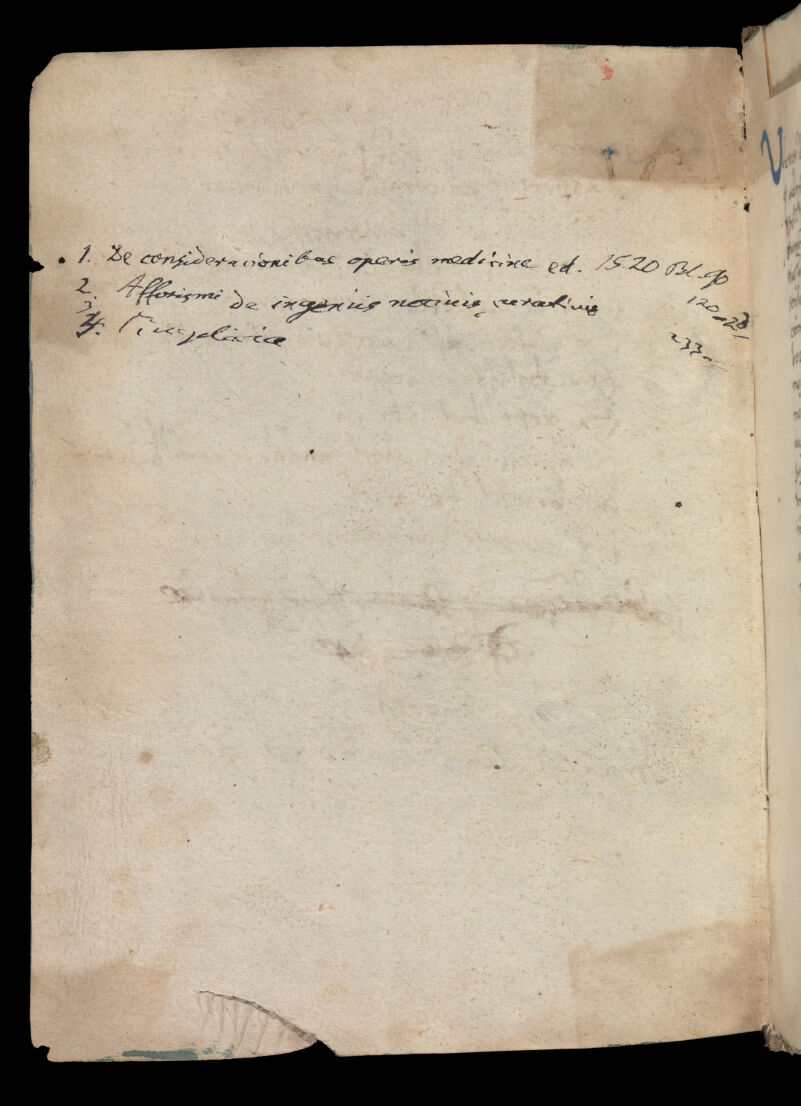 1. De consideracionibus operis medicine ed. 1520 Bl. 90
2. Afforismi de ingeniis nocivis curativis 120-
3.
4. Simplicia 233-
V